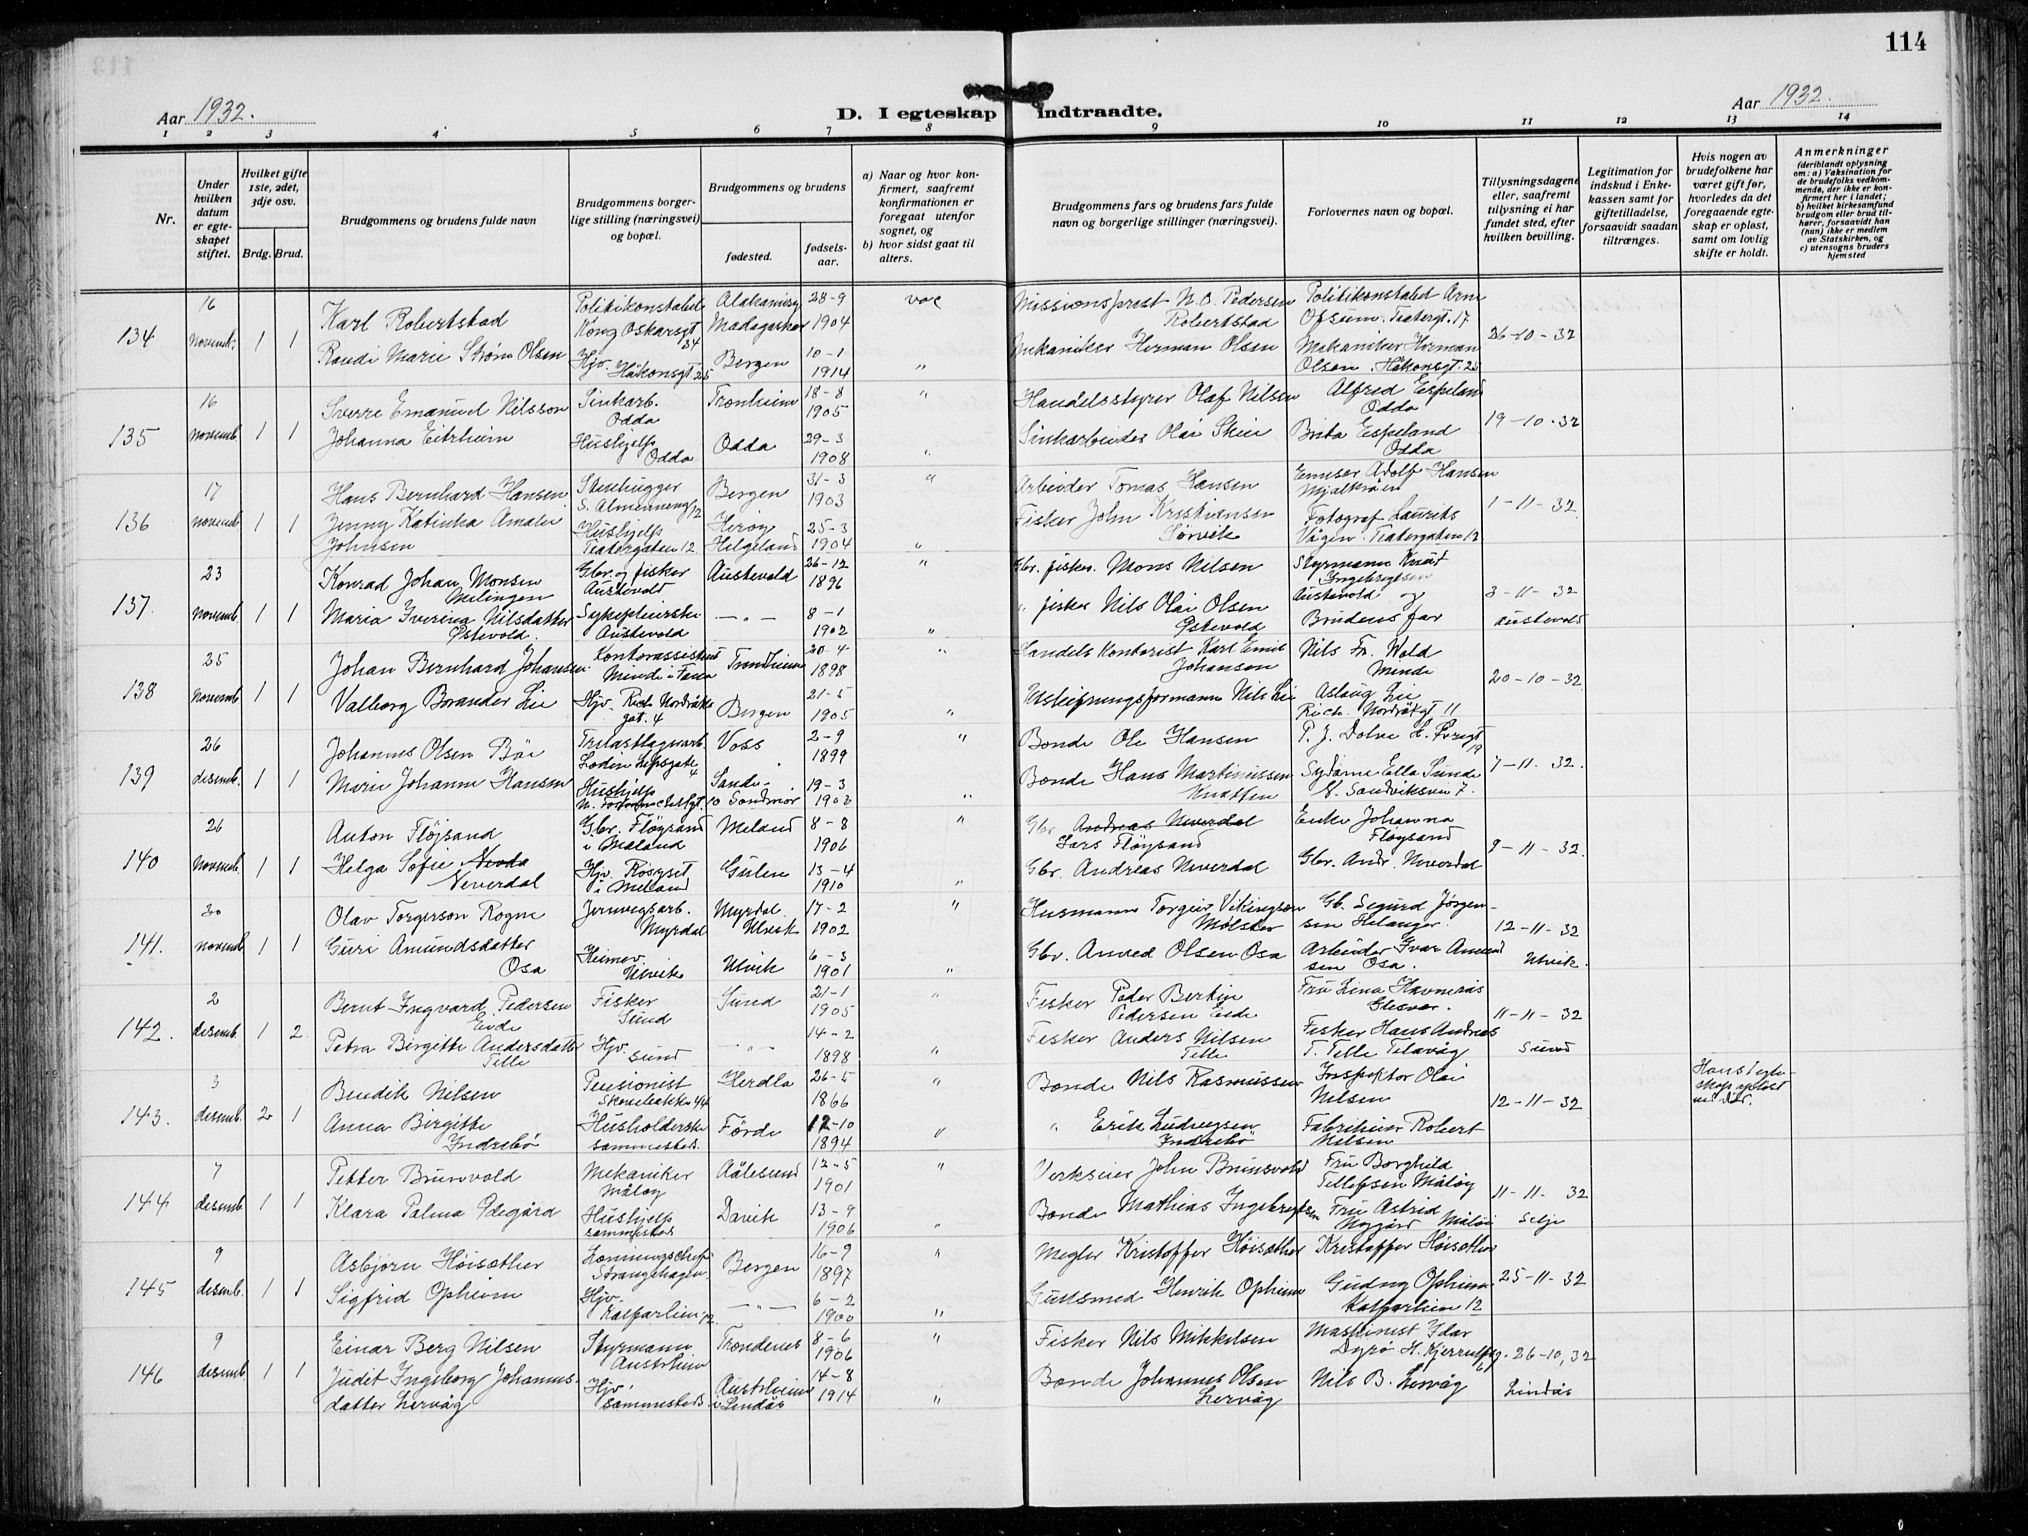 114
Aar 1932.
D. I egteskap indtraadte.
Aar 1932.
1 2 3 4 5 6 7 8 9 10 11 12 13 14
Nr.
Under hvilken datum er egteskapet stiftet.
Hvilket gifte 1ste, 2det, 3dje osv.
Brdg. Brud.
Brudgommens og brudens fulde navn
Brudgommens borgerlige stilling (næringsvei) og bopæl.
Brudgommens og brudens
fødested.
fødselsaar.
a) Naar og hvor konfirmert, saafremt konfirmationen er foregaat utenfor sognet, og
b) hvor sidst gaat til alters.
Brudgommens fars og brudens fars fulde navn og borgerlige stillinger (næringsvei).
Forlovernes navn og bopæl.
Tillysningsdagene eller, saafremt tillysning ei har fundet sted, efter hvilken bevilling.
Legitimation for indskud i Enkekassen samt for giftetilladelse, forsaavidt saadan tiltrænges.
Hvis nogen av brudefolkene har været gift før, hvorledes da det foregaaende egteskap er opløst, samt om lovlig skifte er holdt.
Anmerkninger
(deriblandt oplysning om: a) Vaksination for de brudefolks vedkommende, der ikke er konfirmert her i landet; b) hvilket kirkesamfund brudgom eller brud tilhører, forsaavidt han (hun) ikke er medlem av Statskirken, og c) utensogns bruders hjemsted
134 16 novemb. 1 1
Karl Robertstad Politikonstabel Kong Oskarsgt 34 Madagaskar 28-9 1904 Missionsprest N. O. Pedersen Robertstad Politikonstabel Arne Ofsum. Teatergt. 17
26-10-32
Randi Marie Strøm Olsen Hjv. Håkonsgt 25 Bergen 10-1 1914 " Mekaniker Herman Olsen Mekaniker Herman Olsen. Håkonsgt. 25
135 16 novemb. 1 1
Sverre Emanuel Nilsson Sinkarb. Odda Tronheim 18-8 1905 " Handelsstyrer Olaf Nilsen Alfred Espeland Odda
19-10-32
Johanna Eitrheim Hushjelp Odda Odda 29-3 1908 " Sinkarbeider Olai Brita Espeland Odda
136 17 novemb. 1 1
Hans Bernhard Hansen Stenhugger S. Almenning 12 Bergen 31-3 1903 " Arbeider Tomas Hansen Adolf Hansen
1-11-32
Jenny Katinka Amalie Johnsen Hushjelp Teatergaten 12 Herøy Helgeland 25-3 1904 " Fisker John Kristiansen Sørvik Fotograf Laurits Vågen. Teatergaten 12
137. 23 novemb. 1 1
Konrad Johan Monsen Melingen Gbr. og fisker Austevold Austevold 26-12 1896 " Gbr. fisker Mons Nilsen Styrmann Knut Ingebrigtsen Austevold og
3-11-32 Austevold
Maria Iverina Nilsdatter Østevold. Sykepleierske Austevold — " — 8-1 1902 " " fisker Nils Olai Olsen Østevold Brudens far
138 25 novemb. 1 1
Johan Bernhard Johansen. Kontorassistent Minde i Fana Trondheim 20-4 1898 " Handels Kontorist Karl Emil Johansen Nils Fr. Wold Minde
20-10-32
Valborg Brander Lie Hjv. Rich Nordråks gat. 4 Bergen 21-5 1905 " formann Nils Lie Aslaug Lie Rich. Nordråkgt 11
139 26 desemb. 1 1
Johannes Olsen Bøe Loden Lepsgate 4 Voss 2-9 1899 " Bonde Ole Hansen P. J. Dolve
7-11-32.
Marie Johanne Hansen Hushjelp Sande Søndmør 19-3 1903 " Bonde Hans Martinussen Knotten Sydame Ella Sunde St. Sandviksvei 7.
140 26 novemb. 1 1
Anton Fløjsand Gbr. Fløysand i Meland Meland 8-8 1906 " Gbr Andreas Neverdal Lars Fløysand Enke Johanna Fløysand
9-11-32.
Helga Sofie Nevda Neverdal Hjv. i Meland Gulen 13-4 1910 " Gbr. Andreas Neverdal Gbr. Andr. Neverdal
141. 30 novemb. 1 1
Olav Torgerson Rogne Jernvegsarb. Myrdal Myrdal Ulvik 17-2 1902 " Husmann Torgeir Vikingson Mølster Gb. Sigurd Jørgensen Helanger.
12-11-32 Ulvik.
Guri Amundsdatter Osa Heimev. Ulvik Ulvik 6-3 1901 " Gbr. Amund Olsen Osa Arbeider Ivar Amundsen Osa.
142. 2 desemb. 1 2.
Bernt Ingvard Pedersen Eide Fisker Sund Sund 21-1 1905 " Fisker Peder Bertin Pedersen Eide Fru Lina Havnerås Glesvær.
11-11-32 Sund
Petra Birgitte Andersdatter Telle Hjv. Sund — " — 14-2 1898 " Fisker Anders Nilsen Telle Fisker Hans Andreas T. Telle Telavåg
143. 3 desemb. 2 1
Bendik Nilsen Pensionist Skovebakken 44 Herdla 26-5 1866 " Bonde Nils Rasmussen Inspektør Olai Nilsen
12-11-32
Hans 1 egteskap opløst ved død.
Anna Birgitte Indrebø Husholderske sammesteds. Førde 12-10 1894 " " Erik Ludvigsen Indrebø Fabrikeier Robert Nilsen
144 7 desemb. 1 1
Petter Brunvold Mekaniker Måløy Aålesund 12-5 1901 " Verkseier John Brunsvold Fru Borghild Tellefsen Måløy
11-11-32 Selje
Klara Palma Ødegård Hushjelp sammesteds Davik 13-9 1906 " Bonde Mathias Ingebrigtsen Fru Astrid Nygård Måløi
145 9 desemb. 1 1
Asbjørn Høisæther Strangehagen Bergen 16-9 1897 " Megler Kristoffer Høisæther Kristoffer Høisæther
25-11-32
Sigfrid Opheim Hjv. Kalfarlien 12. — " — 6-2 1900 " Gullsmed Henrik Opheim Gudny Opheim Kalfarlien 12
146 9 desemb. 1 1
Einar Berg Nilsen Styrmann Austrheim Trondenes 8-6 1906 " Fisker Nils Mikkelsen Maskinist Idar Dyrø H. Kjerrulfsg. 6
26-10, 32 Lindås
Judit Ingeborg Johannesdatter Lervåg Hjv. sammesteds Austrheim i Lindås 14-8 1914 " Bonde Johannes Olsen Lervåg Nils B. Lervåg